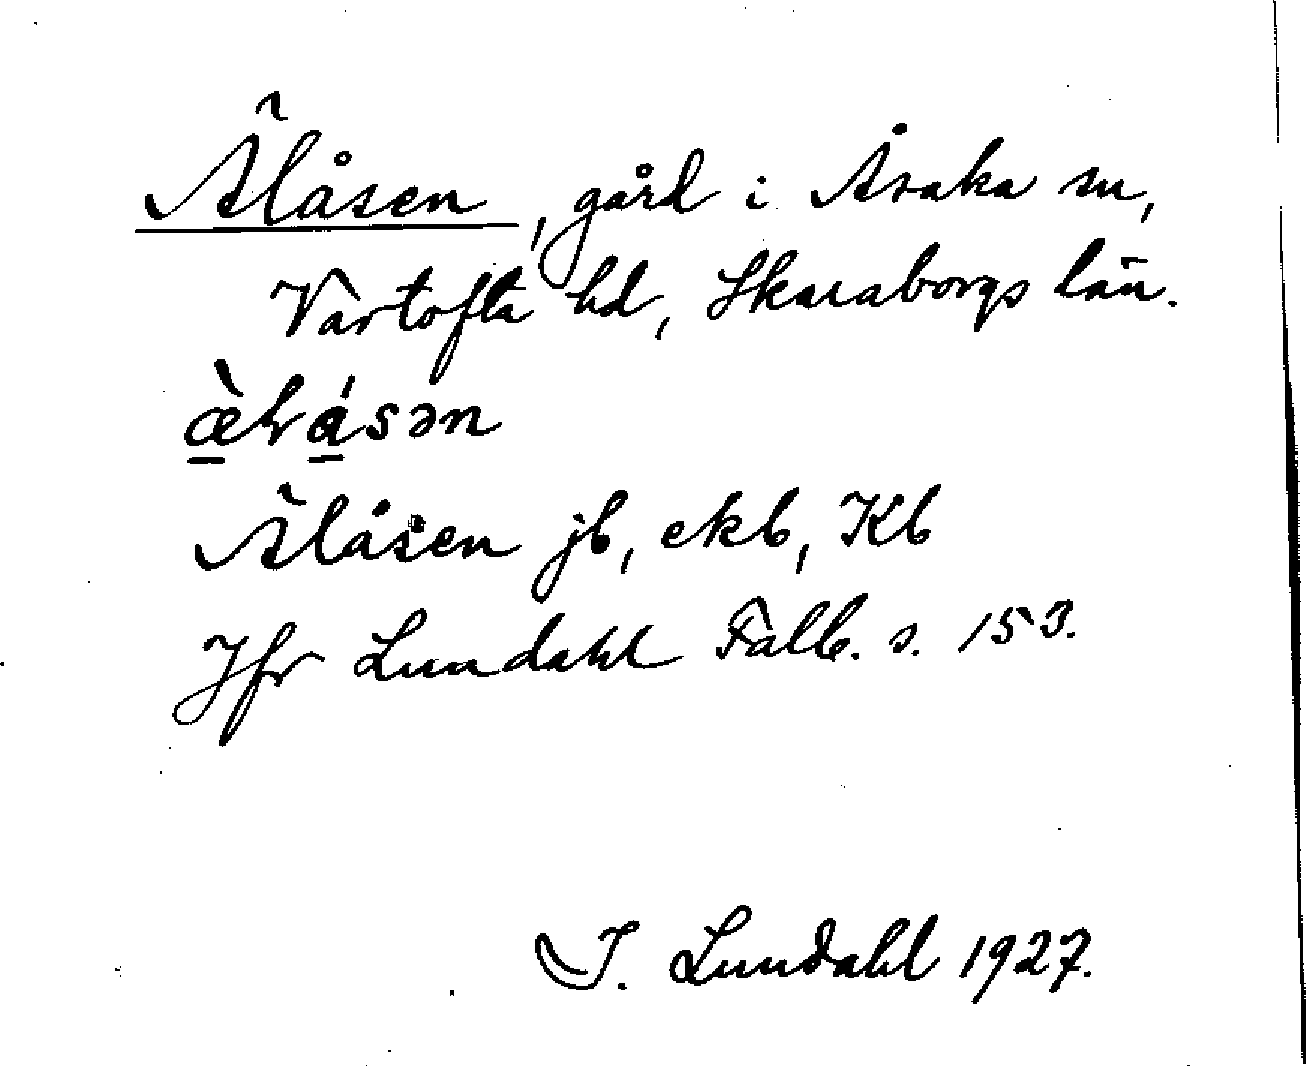 Älåsen, gård i Åsaka sn,
Vartofta hd, Skaraborgs län.
æ̀lɑ́sən
Älåsen jb, ekb, Kb
Jfr Lundahl Falb. s. 153.
I. Lundahl 1927.